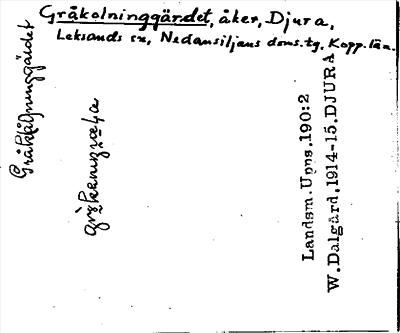 Gråkolninggärdet, åker, Djura,
Leksands sn, Nedansiljans doms.tg, Kopp.län.
Gråkålnunggärdet
Landsm.Upps.190:2
W.Dalgård.1914-15.DJURA